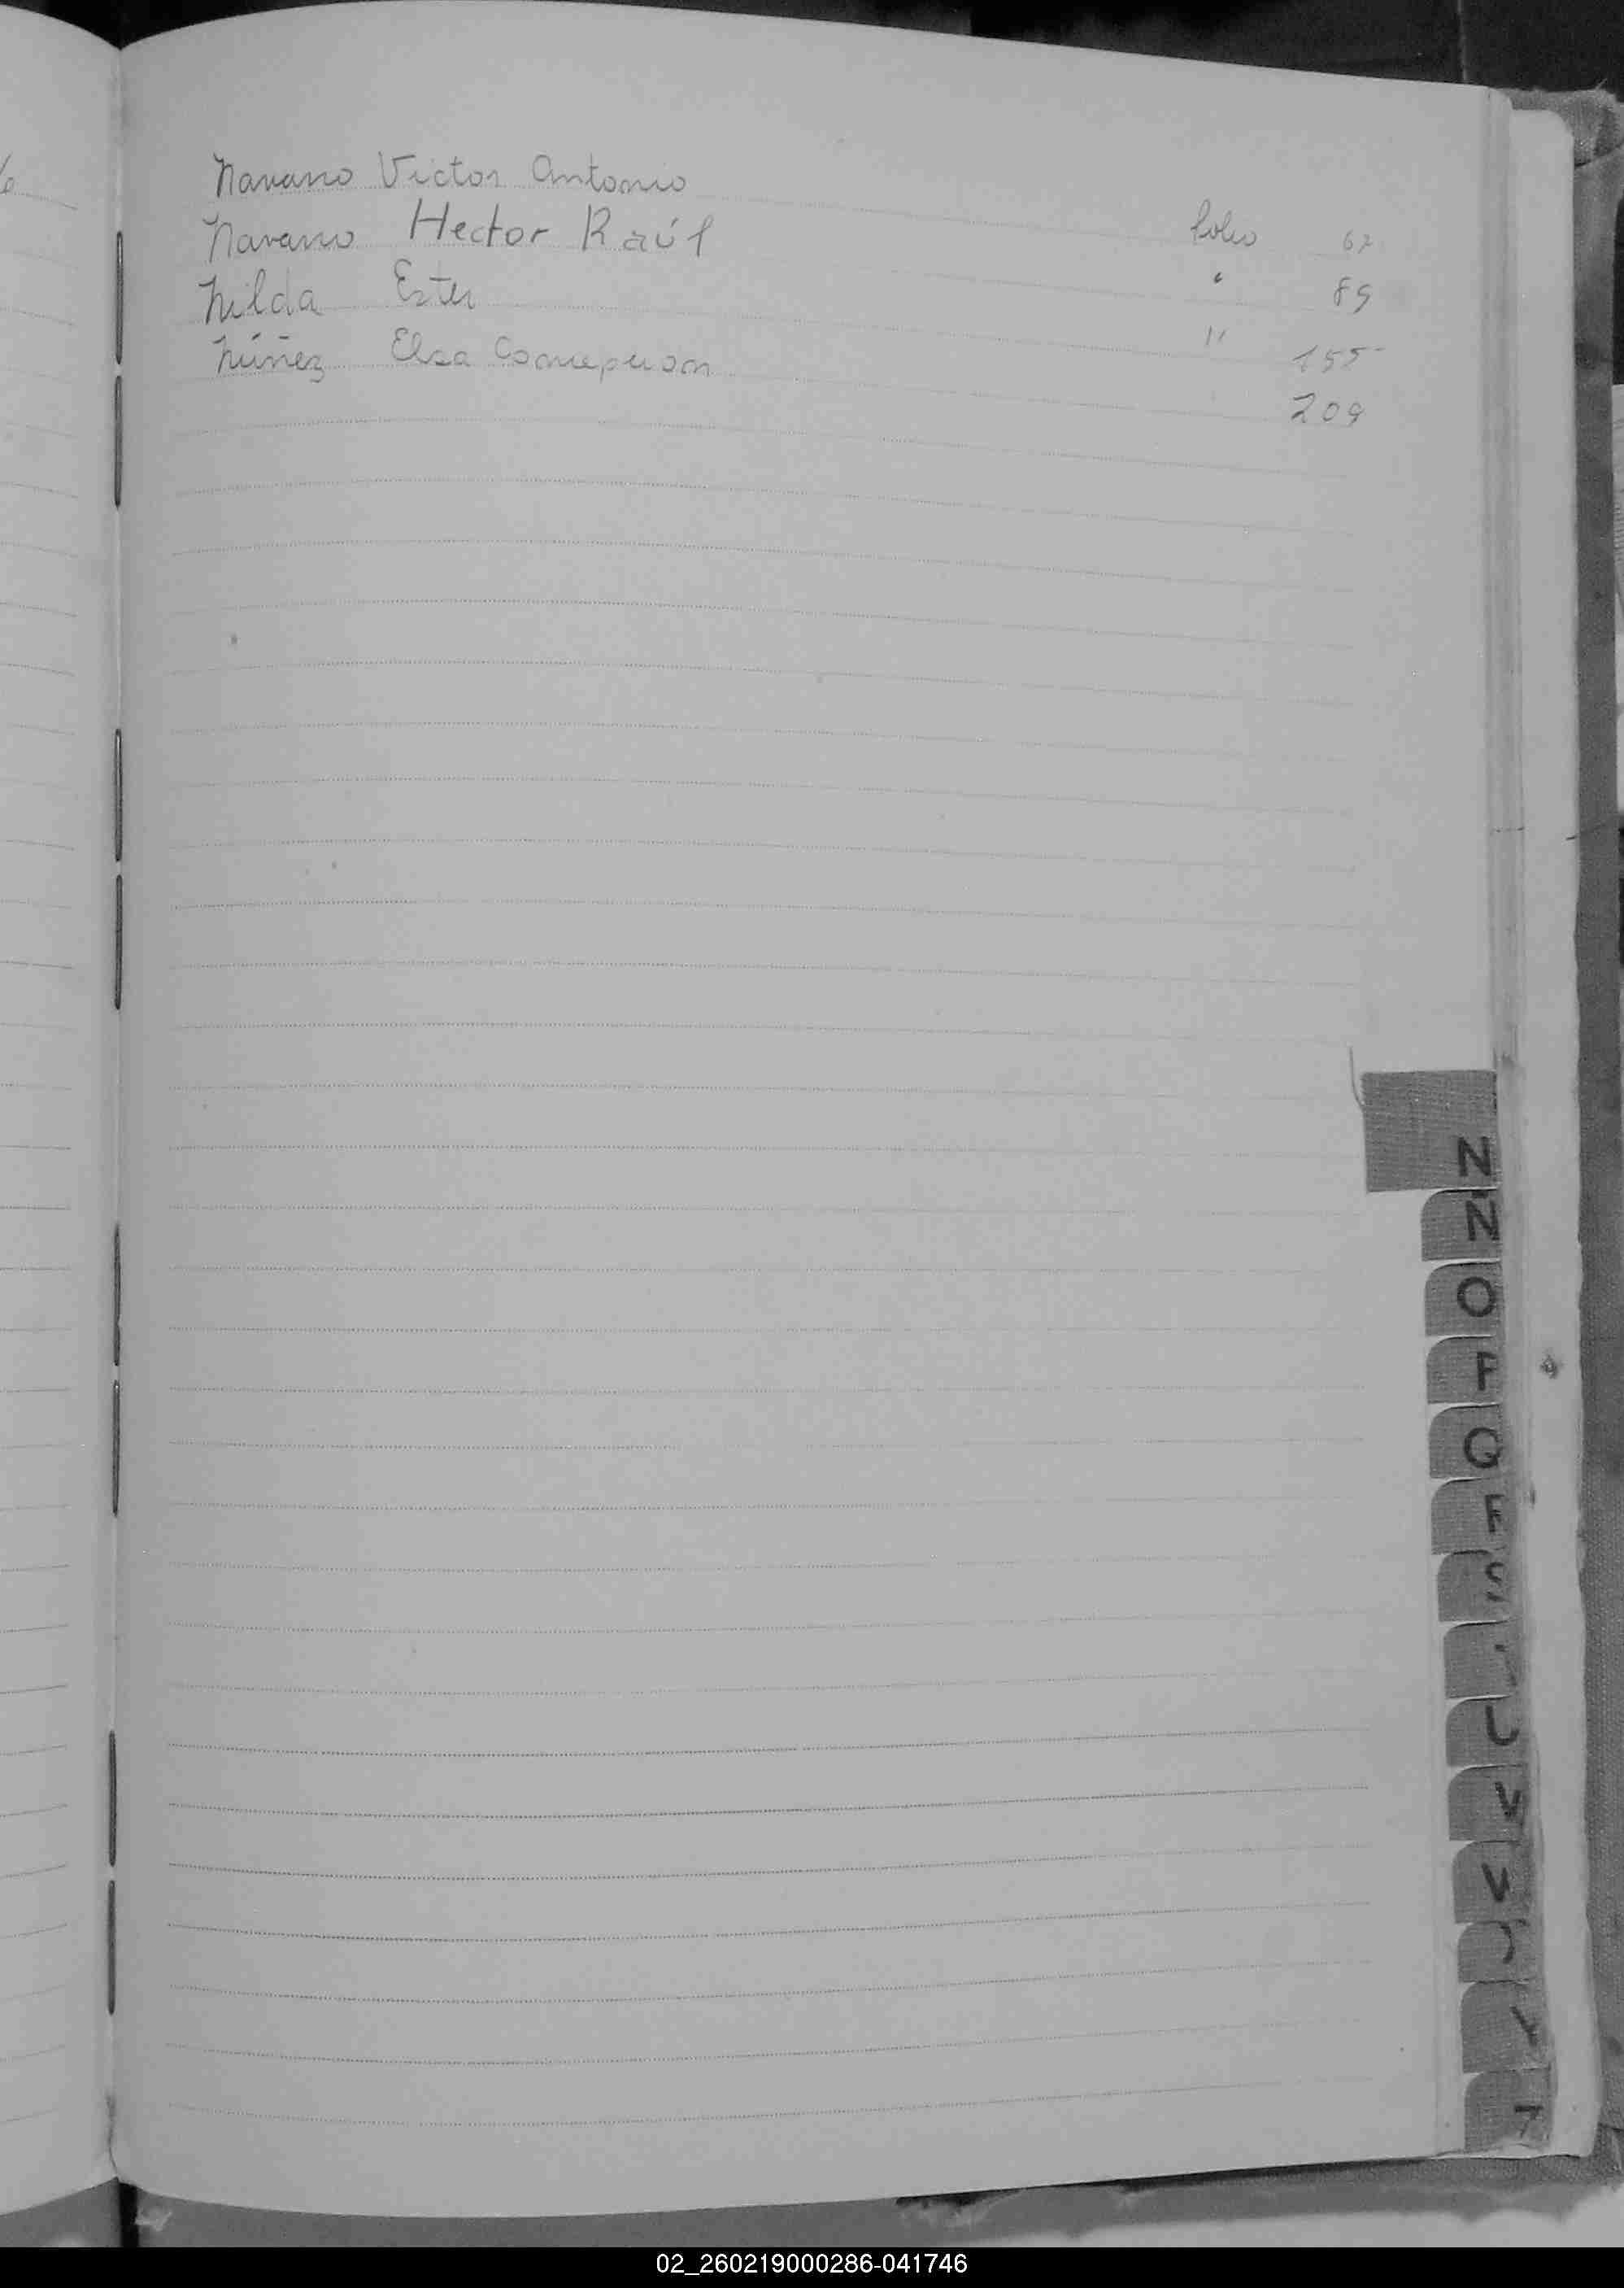 Navarro Victor Antonio Folio 67
Navarro Hector Raúl " 89
Nilda Ester " 155
Núñez Elsa Concepcion 209
N
Ñ
O
P
Q
R
S
U
V
02_260219000286-041746